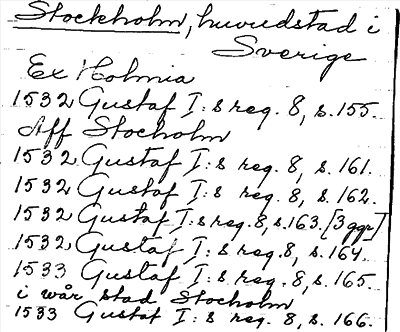 Stockholm, huvudstad i
Sverige
Ex Holmia
1532 Gustaf I:s reg. 8, s. 155.
Aff Stocholm
1532 Gustaf I:s reg. 8, s. 161.
1532 Gustaf I:s reg. 8, s. 162.
1532 Gustaf I:s reg. 8, s. 163. [3 ggr]
1532 Gustaf I:s reg. 8, s. 164.
1533 Gustaf I:s reg. 8, s. 165.
i wår stad Stocholm
1533 Gustaf I:s reg. 8, s. 166.